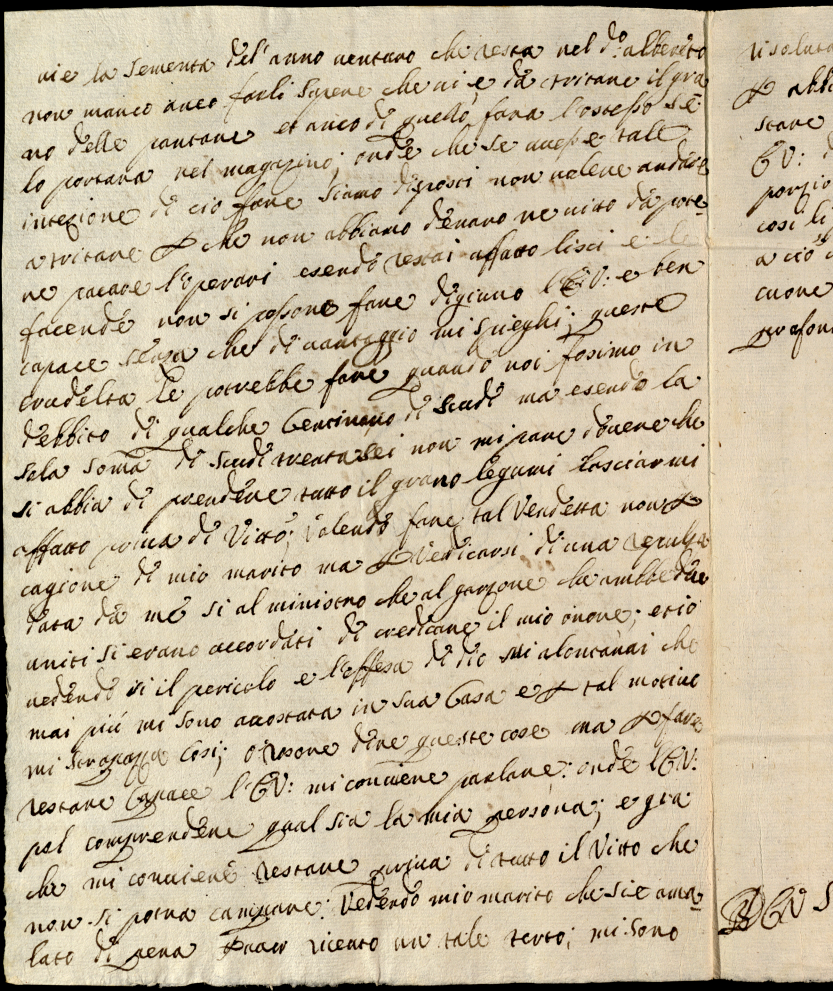 vi è la sementa del'anno venturo che resta nel d:o alberéto
non manco anco farli sapere che vi è da tritare il gra
no delle pantane et anco di quello farà l'ostesso sè
lo portarà nel magazino; onde che se avesse tale
intezione di ciò fare siamo disposti non volere andare
a tritare per che non abbiamo denaro ne vitto da pote=
re pacare l'operari esendo restai affatto lisci e le
facende non si possono fare digiuno l'EV: e ben
capace senza che di vantaggio mi spieghi; queste
crudelta le potrebbe fare quando noi fosimo in
debbito di qualche Centinaro di scudi ma esendo la
sola soma di scudi trentasei non mi pare dovere che
si abbia di prendere tutto il grano legumi lasciarmi
affatto priva di Vitto; volendo fare tal Vendetta non per
cagione di mio marito ma per Vedicarsi di una repulsa
data da me si al ministro che al garzone che ambe due
uniti si erano accordati di credicare il mio onore; et io
vedendo si il pericolo e l'offesa di dio mi alontanai che
mai più mi sono accostata in sua Casa e per tal motivo
mi strapazza così; dire queste cose ma per fare
restare Capace l'EV: mi conviene parlare: onde l'EV:
pol comprendere qual sia la mia persona; e già
che mi conviene restare priva di tutto il Vitto che
non si potrà campare: Vedendo mio marito che si è ama=
lato di pena un tale torto; mi sono
risoluta
per abbi
stare
EV: d
porzio
così li
a ciò
cuore
profon